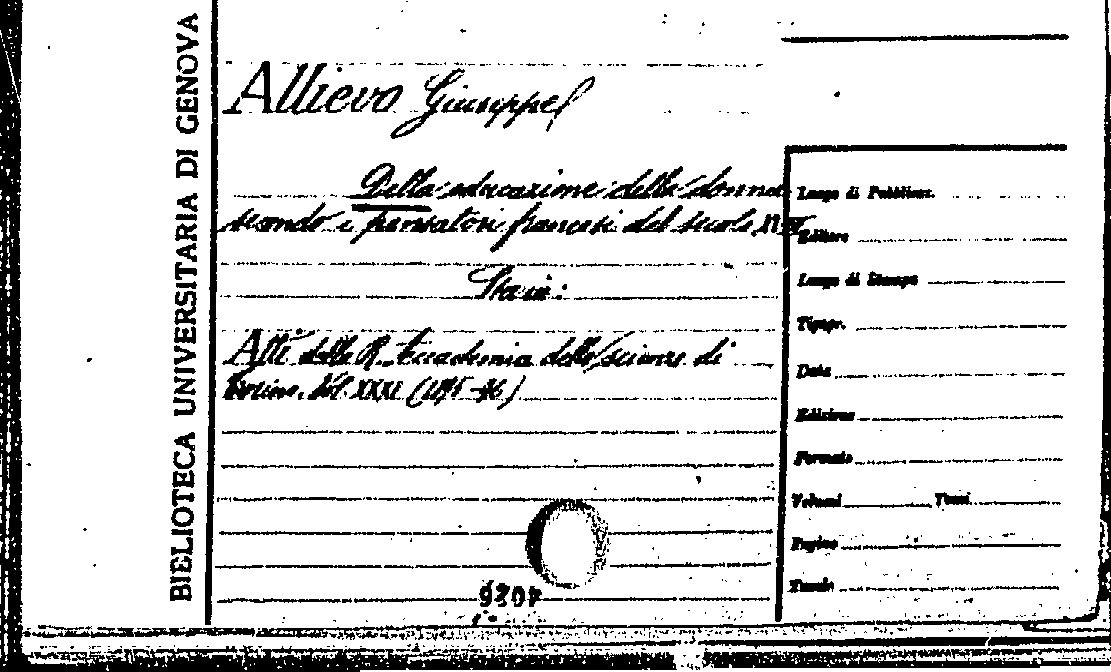 BIBLIOTECA UNIVERSITARIA DI GENOVA
Allievo Giuseppe
Della educazione della donna
secondo i pensatori francesi del secolo
Sta in:
Atti della R. Accademia delle scienze di
Torino. Vol. XXXI (1895-96)
Luogo di Pubblicaz.
Editore
Luogo di Stampa
Tipogr.
Data
Edizione
Formato
Volumi Tomi
Pagine
Tavole